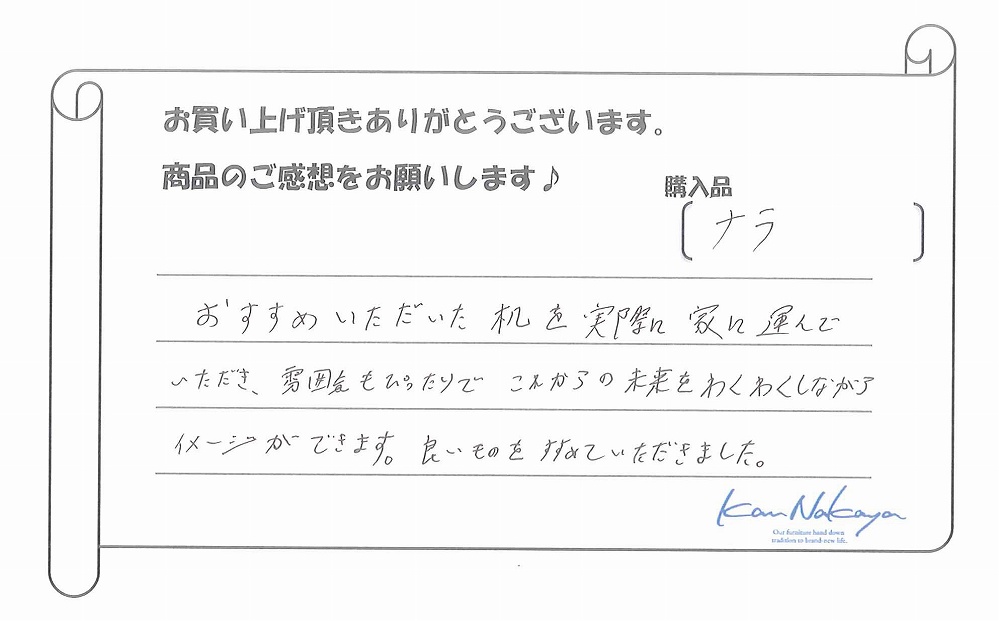 お買い上げ頂きありがとうございます。
商品のご感想をお願いします♪
購入品
〔 ナラ 〕
おすすめいただいた机を実際に家に運んで
いただき、雰囲気もぴったりで これからの未来をわくわくしながら
イメージができます。良いものをすすめていただきました。
Kan Nakaya
Our furniture hand down
tradition to brand-new life.